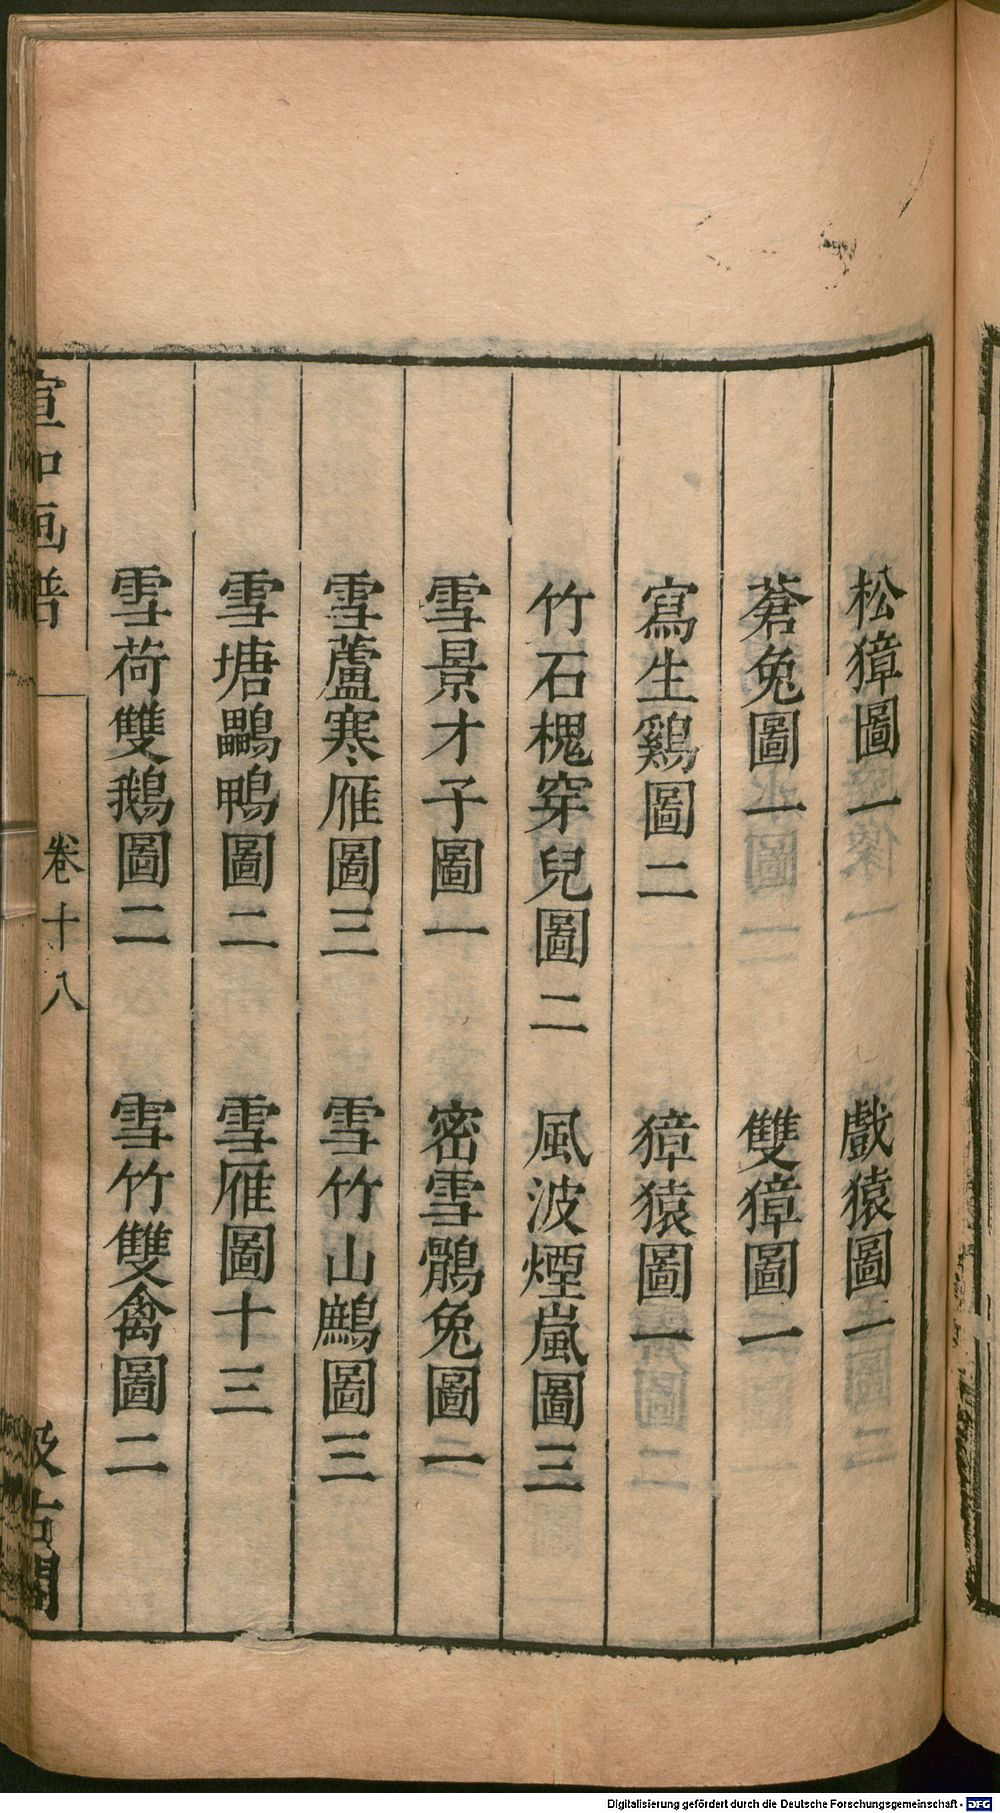 松獐圖一　戲猿圖一
蒼兔圖一　雙獐圖一
寫生鷄圖二　獐猿圖一
竹石槐穿兒圖二　風波煙嵐圖三
雪景才子圖一　密雪鶻兔圖一
雪蘆寒雁圖三　雪竹山鷓圖三
雪塘鸓鴨圖二　雪雁圖十三
雪荷雙鵝圖二　雪竹雙禽圖二
宣和画譜　卷十八　汲古閣
Digitalisierung gefördert durch die Deutsche Forschungsgemeinschaft - DFG